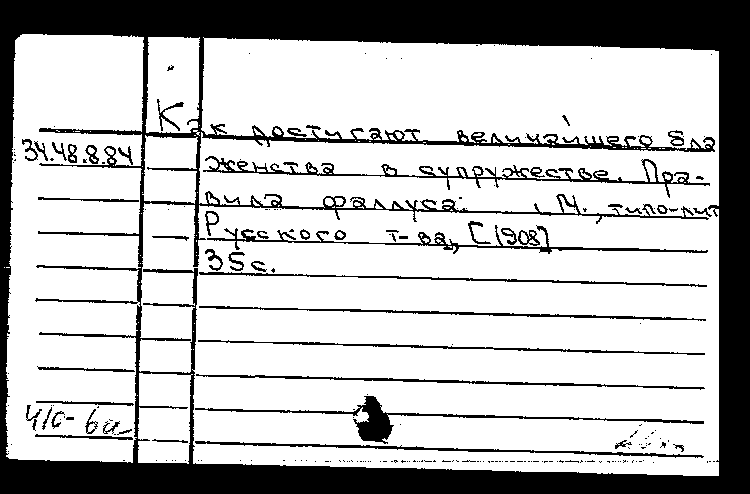 Как достигают величайшего бла
34.48.8.84
женства в супружестве. Пра-
вила фаллуса. М., типо-лит
Русского т-ва, [1908].
35 с.
410-6а